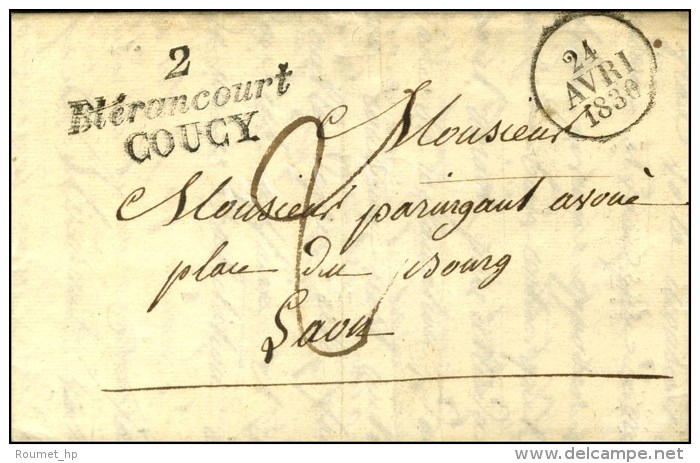 2
Blérancourt
COUCY
24
AVRI
1830
2
Monsieur
Monsieur paringant avoué
place du Bourg
Laon
Roumet_hp
www.delcampe.net